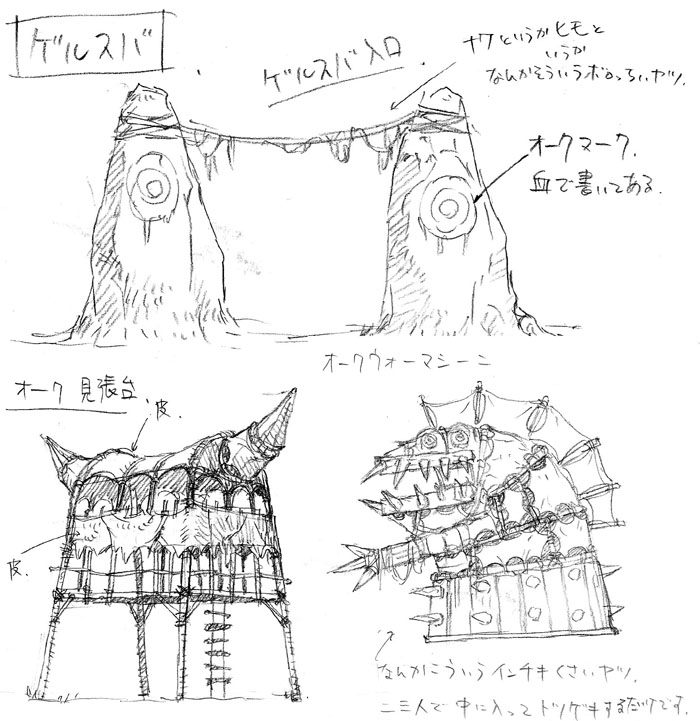 ゲルスバ
ゲルスバ入口
ナワというかヒモと
いうか
なんかそういうボロっちいヤツ.
オークマーク.
血で書いてある.
オークウォーマシーン
オーク 見張台
皮.
皮.
なんかこういうインチキくさいヤツ.
二三人で中に入ってトツゲキするだけです.